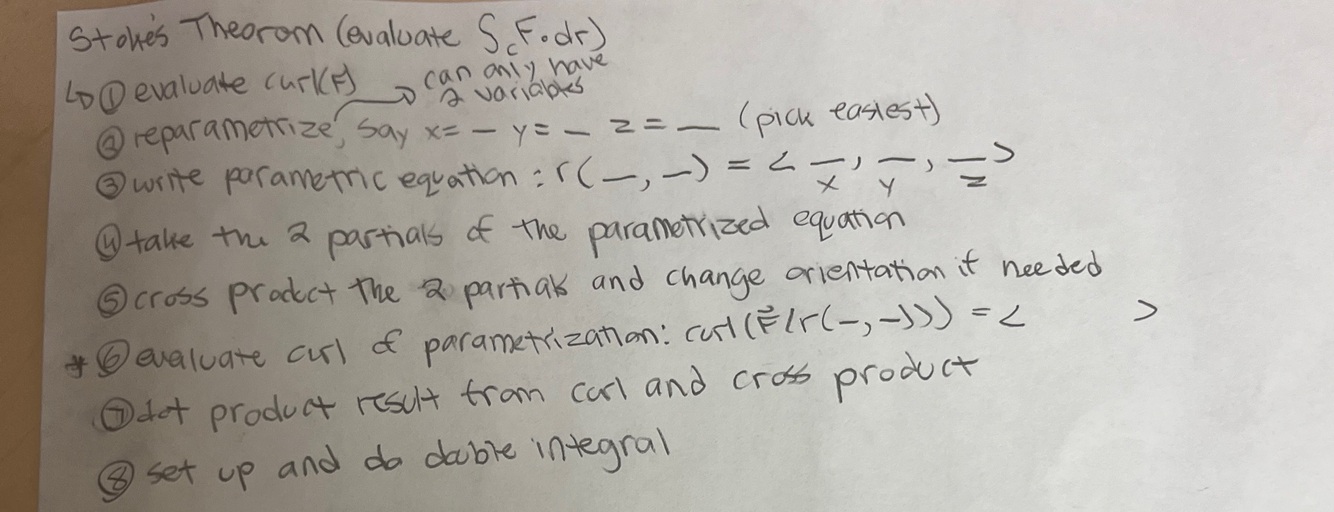 Stoke's Theorom (evaluate ∫c F·dr)
↳ ① evaluate curl(F) → can only have
2 variables
② reparametrize, say x= – y= – z = — (pick easiest)
③ write parametric equation : r(—, –) = < —, —, —>
x y z
④ take the 2 partials of the parametrized equation
⑤ cross product the 2 partials and change orientation if needed
* ⑥ evaluate curl of parametrization: curl (F⃗(r(–, –))) = < >
⑦ dot product result from curl and cross product
⑧ set up and do double integral